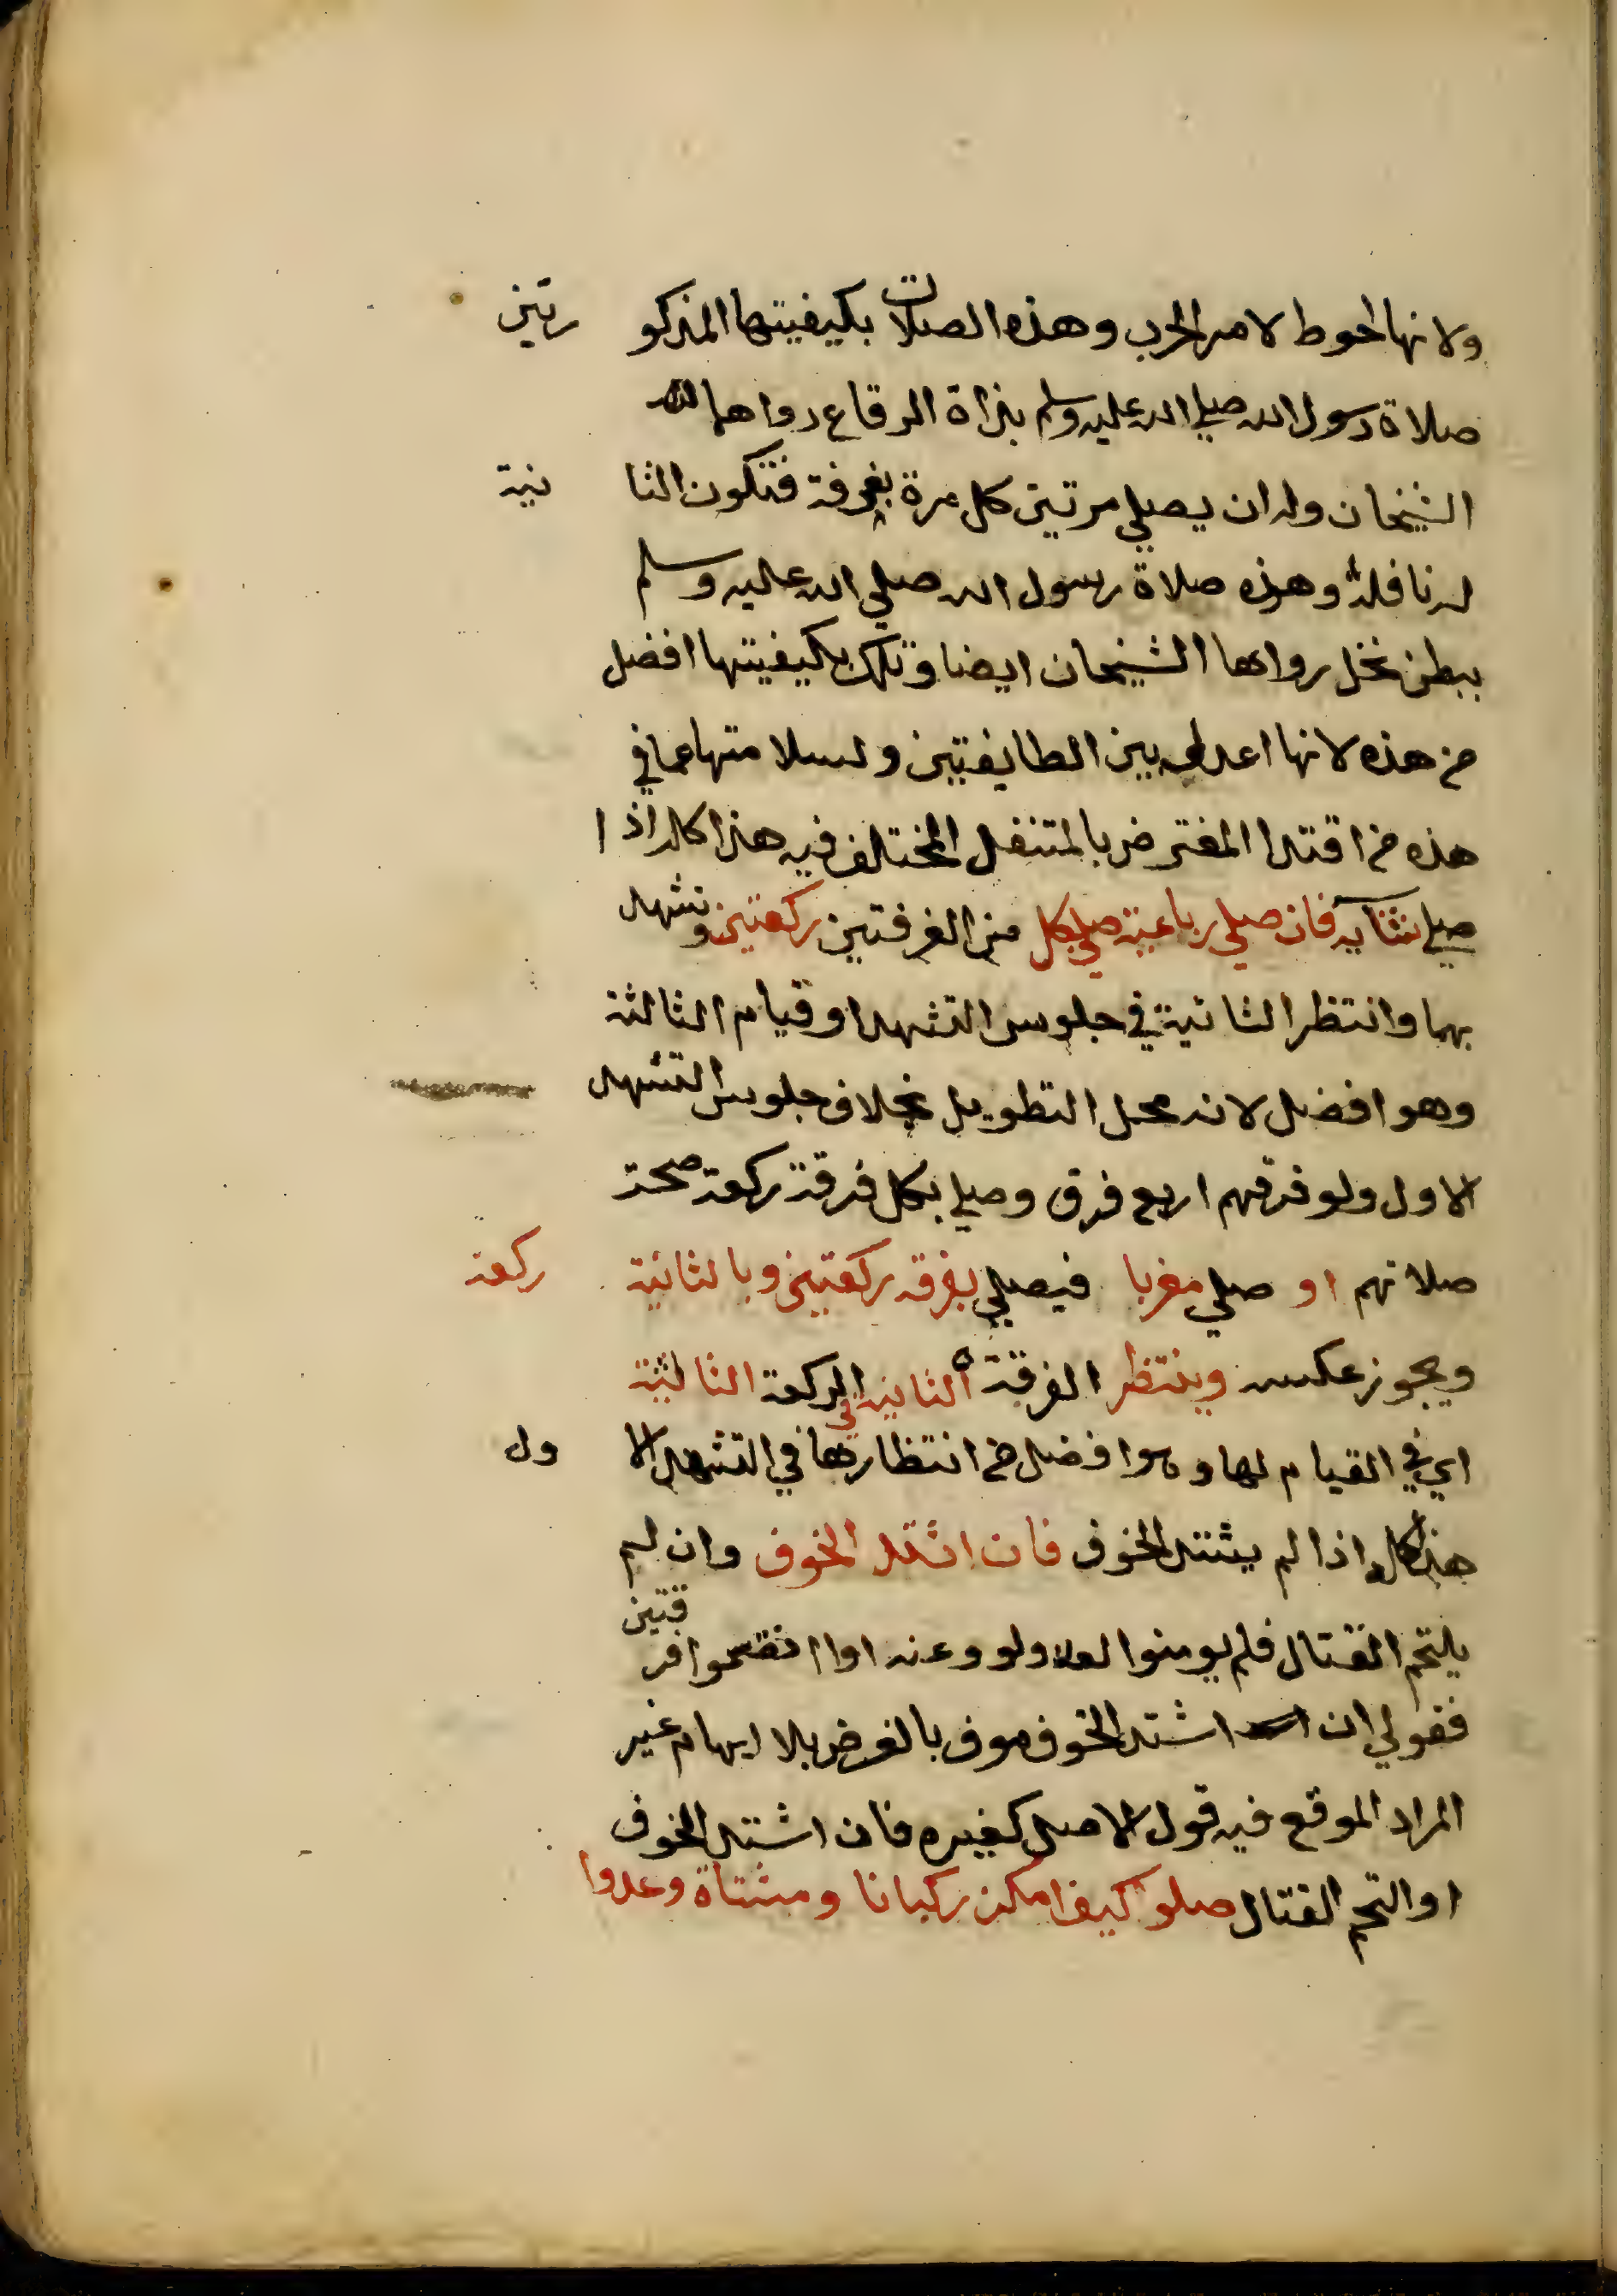 ولانها احوط لامر الحرب وهذه الصلات بكيفيتها المذكو رتين
صلاة رسول الله صلي الله عليه وسلم بذاة الرقاع رواهما
الشيخان وله ان يصلي مرتين كل مرة بفرقة فتكون الثا نية
له نافلة وهذه صلاة رسول الله صلي الله عليه وسلم
ببطن نخل رواها الشيخان ايضا وتلك بكيفيتها افضل
من هذه لانها اعدل بين الطايفتين ولسلامتها عما في
هذه من اقتدا المفترض بالمتنفل المختلف فيه هذا كله اذا
صلي ثنائية فان صلي رباعية صلي بكل من الفرقتين ركعتين وتشهد
بهما وانتظر الثانية في جلوس التشهد او قيام الثالثة
وهو افضل لانه محل التطويل بخلاف جلوس التشهد
الاول ولو فرقهم اربع فرق وصلي بكل فرقة ركعة صحة
صلاتهم او صلي مغربا فيصلي بفرقه ركعتين وبالثانية ركعة
ويجوز عكسه وينتظر الفرقة الثانية في الركعة الثالثة
اي في القيام لها وهوا فضل من انتظارها في التشهد الا ول
هذا كله اذا لم يشتد الخوف فان اشتد الخوف وان لم
يلتحم القتال فلم يومنوا العدو لو وعنه اوا انقسموا فر قتين
فقولي ان اشتد الخوف موف بالغرض بلا ايهام غير
المراد الموقع فيه قول الاصل كغيره فان اشتد الخوف
او التحم القتال صلو كيف امكن ركبانا ومشتاة وعدوا